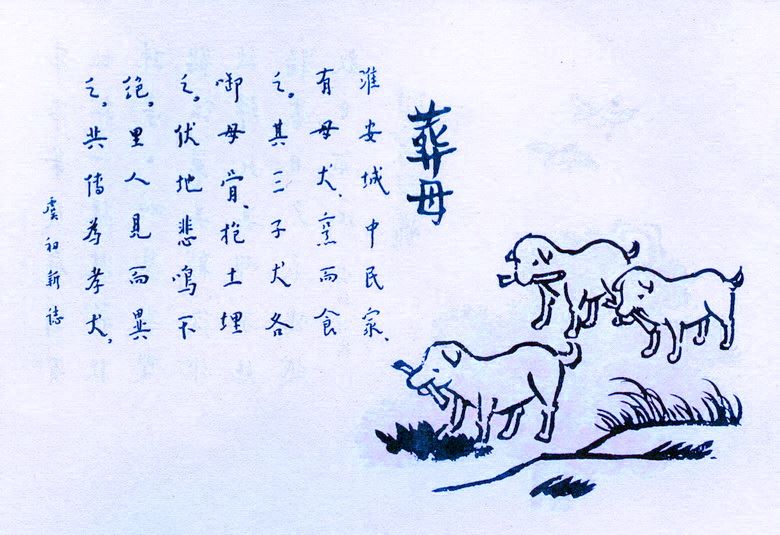 葬母
淮安城中民家、
有母犬、烹而食
之。其三子犬各
啣母骨、抱土埋
之。伏地悲鳴不
绝。里人見而異
之。共傳為孝犬。
虞初新誌